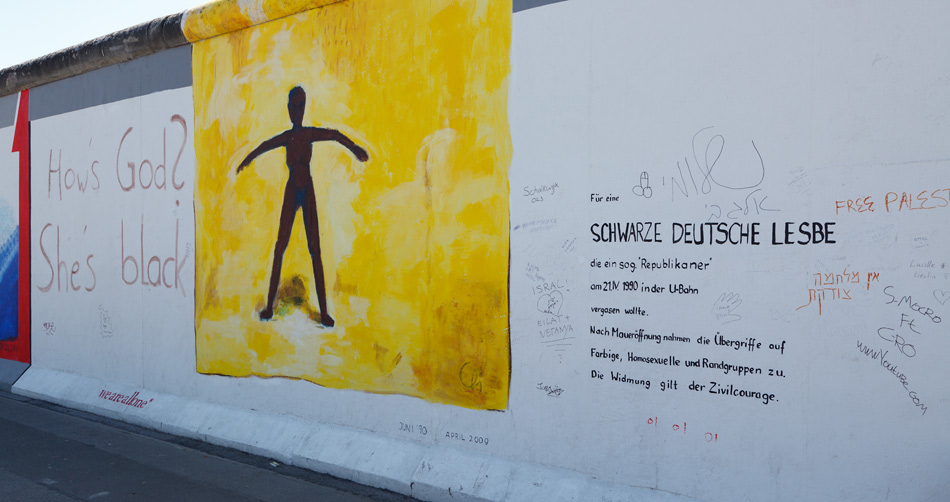 How's God?
She's black
weareallone
JUNI '90
APRIL 2009
Für eine
SCHWARZE DEUTSCHE LESBE
die ein sog. "Republikaner"
am 21.IV. 1990 in der U-Bahn
vergasen wollte.
Nach Maueröffnung nahmen die Übergriffe auf
Farbige, Homosexuelle und Randgruppen zu.
Die Widmung gilt der Zivilcourage.
ISRAL
EILAT+
NETANYA
FREE PALEST
אין מלחמה
צודקת
S.MOCRO
Ft
CRO
www.Youtube.com